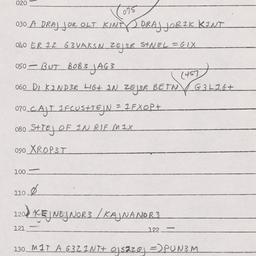 020 —
(075
030 A DRAJ JOR OLT KINT / DRAJ JORIK KINT
040 ER IZ G3VAKSN ZEJSR S+NEL = GIX
050 — BUT BOB3 JAG3
(457
060 DI KIND3R LIG+ IN ZEJ3R BETN G3LIG+
070 CAJT IFCUS+TEJN = IFXOP+
080 S+TEJ OF IN RIF MIX
090 XROP3T
100 —
110 Ø
120 KEJNEJNOR3 / KAJNANOR3
121 — 122 —
130 MIT A G3ZINT+ =) PUN3M